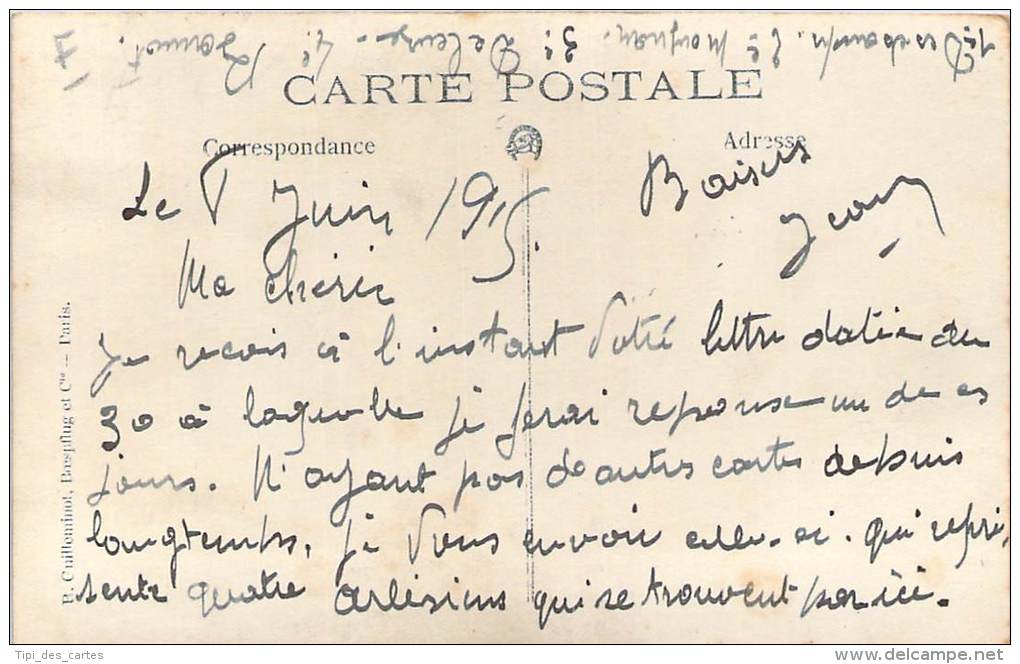 CARTE POSTALE
Correspondance
Adresse
Baisers
Jean
Le 8 Juin 1915.
Ma cherie
Je recois à l'instant Votre lettre datée du
30 à laquelle je ferai reponse un de ces
jours. N'ayant pas de autres cartes depuis
longtemps, je Vous envoie celle-ci. qui repré-
sente quatre arlésiens qui se trouvent par ici.
R. Guilleminot, Bœspflug et Cie — Paris.
1º 2º 3º 4º
Tipi_des_cartes
delcampe.net